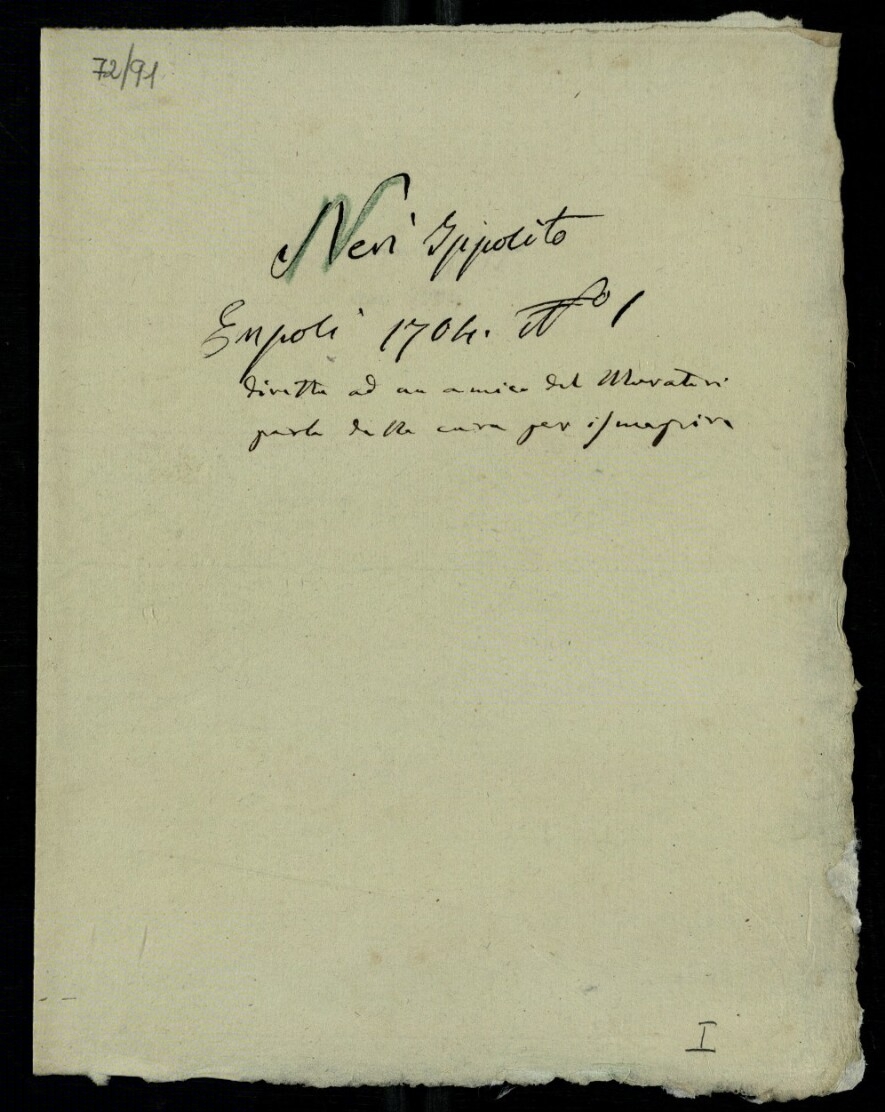 72/91
Neri Ippolito
Empoli 1704. N.o 1
diretta ad un amico del Muratori
parla della cura per
I